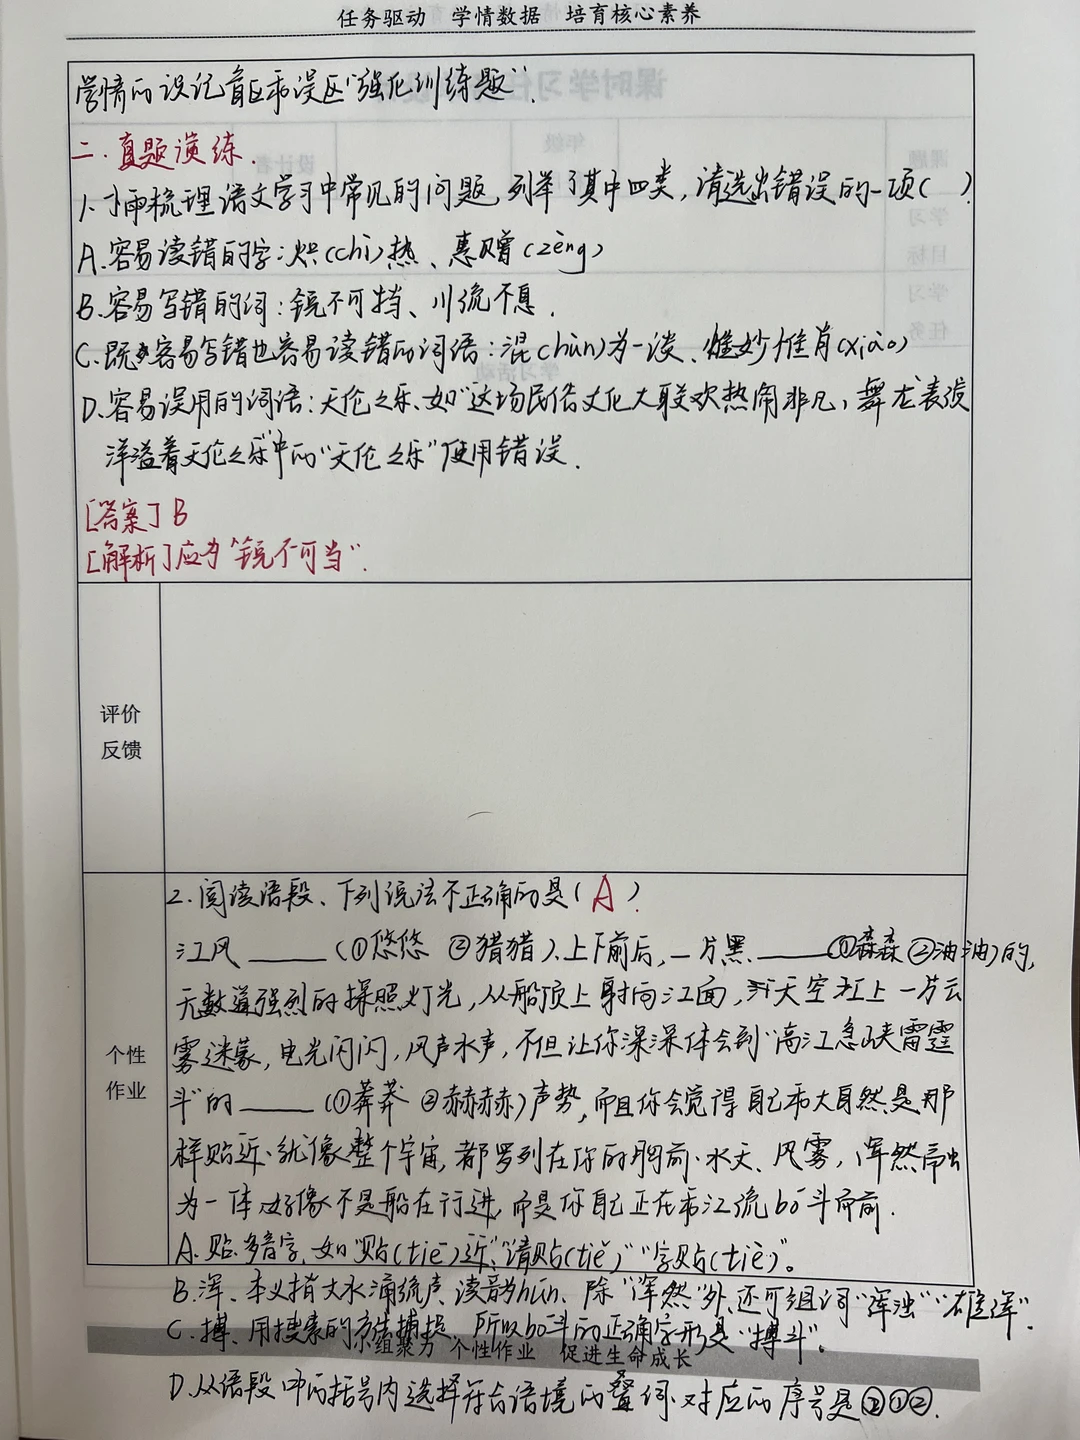 任务驱动 学情数据 培育核心素养
学情的误记盲区和误区"强化训练题".
二.真题演练.
1.小雨梳理语文学习中常见的问题,列举了其中四类,请选出错误的一项( ).
A.容易读错的字:炽(chì)热、惠赠(zèng)
B.容易写错的词:锐不可挡、川流不息.
C.既容易写错也容易读错的词语:混(hùn)为一谈、惟妙惟肖(xiào)
D.容易误用的词语:天伦之乐、如"这场民俗文化大联欢热闹非凡,舞龙表演
洋溢着天伦之乐"中的"天伦之乐"使用错误.
[答案]B
[解析]应为"锐不可当".
评价
反馈
个性
作业
2.阅读语段、下列说法不正确的是(A)
江风____(①悠悠 ②猎猎)、上下前后,一片黑____(①森森 ②油油)的,
无数道强烈的探照灯光,从船顶上射向江面,天空江上一片云
雾迷蒙,电光闪闪,风声水声,不但让你深深体会到"高江急峡雷霆
斗"的____(①莽莽 ②赫赫)声势,而且你会觉得自己和大自然是那
样贴近.就像整个宇宙,都罗列在你的胸前.水天、风雾,浑然融
为一体.好像不是船在行进,而是你自己正在和江流bó斗而前.
A.贴.多音字,如"贴(tiē)近""请贴(tiě)""字贴(tiè)"。
B.浑、本义指大水涌流声、读音为hún、除"浑然"外,还可组词"浑浊""雄浑".
C.搏、用搜索的方法捕捉、所以bó斗的正确字形是"搏斗"。
组聚力 个性作业 促进生命成长
D.从语段中的括号内选择符合语境的叠词.对应的序号是②①②.